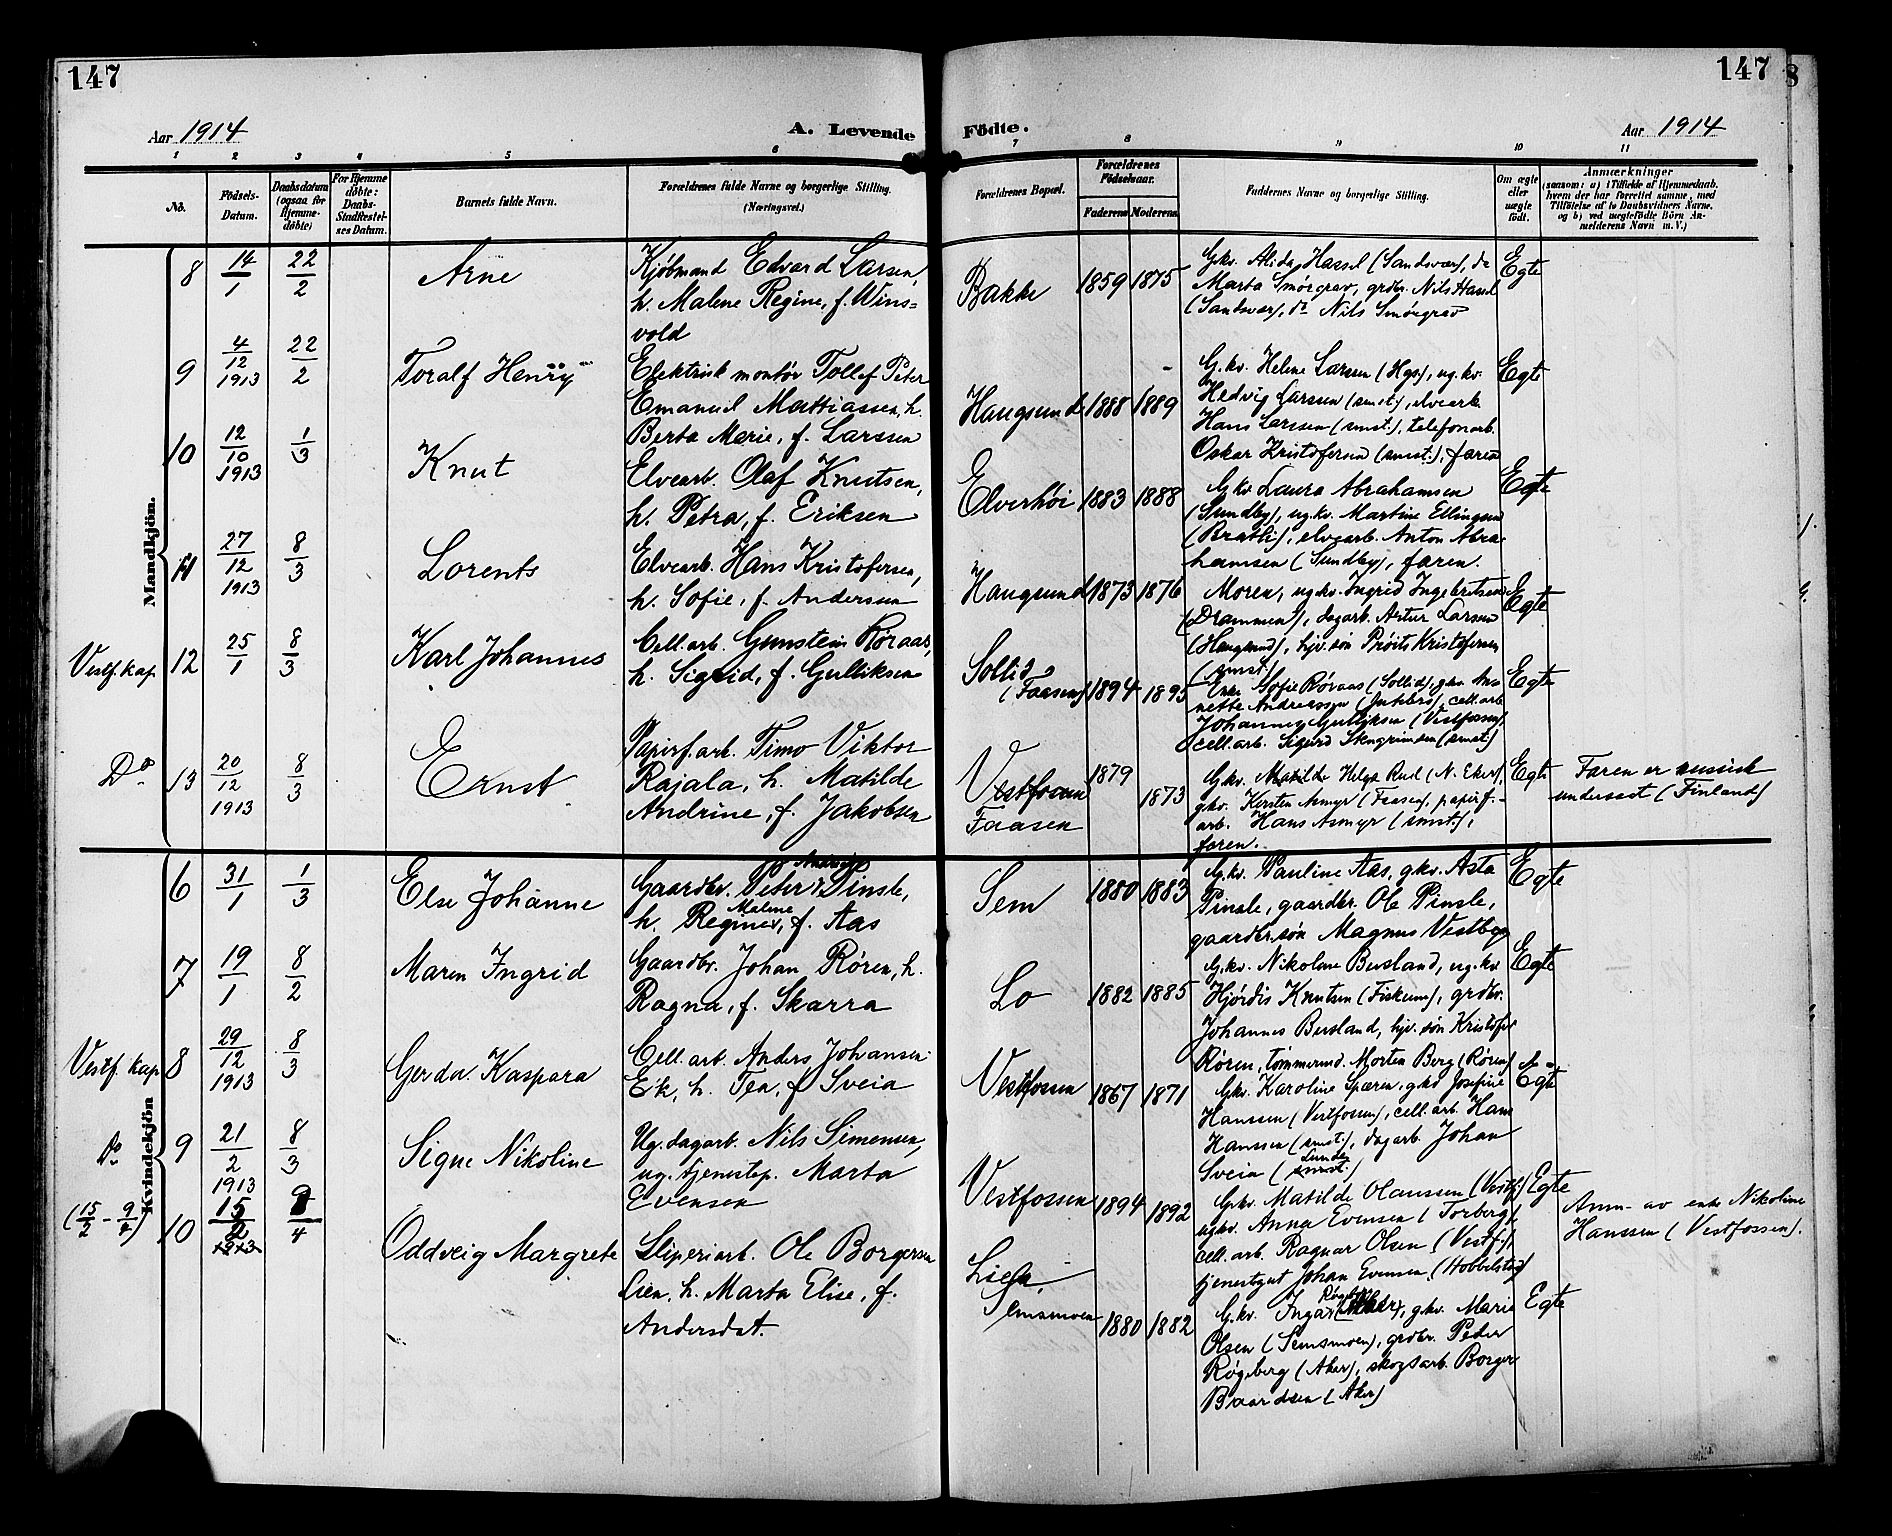 147
147
8
Aar 1914
A. Levende
Födte.
Aar 1914
1 2 3 4 5 6 7 8 9 10 11
No.
Födsels-
Datum.
Daabsdatum
(ogsaa for
Hjemme-
döbte)
For Hjemme
döbte:
Daabs-
Stadfæstel-
ses Datum.
Barnets fulde Navn.
Forældrenes fulde Navne og borgerlige Stilling.
(Næringsvei.)
Forældrenes Bopæl.
Forældrenes
Födselsaar.
Faderens Moderens
Faddernes Navne og borgerlige Stilling.
Om ægte
eller
uægte
födt.
Anmærkninger
(saasom: a) i Tilfælde af Hjemmedaab,
hvem der har forrettet samme, med
Tilföielse af to Daabsvidners Navne,
og b) ved uægtefödte Börn An-
melderens Navn m. V.)
Mandkjön.
8 14/1 22/2 Arne
Kjöbmand Edvard Larsen,
h. Malene Regine, f. Wins=
vold
Bakke 1859 1875
Gkv. Alida Hassel (Sandsvær), do
Marta Smörgrav, grdbr. Nils Hassel
(Sandsvær), do Nils Smörgrav
Egte
9 4/12 1913 22/2 Toralf Henry
Elektrisk montör Tollef Peter
Emanuel Mattiassen, h.
Berta Marie, f. Larssen
Haugsund 1888 1889
Gkv. Helene Larsen (Hgs), ug. kv.
Hedvig Larssen (smst.), elvearb.
Hans Larssen (smst.), telefonarb.
Oskar Kristofersen (smst.), faren
Egte
10 12/10 1913 1/3 Knut
Elvearb. Olaf Knutsen,
h. Petra, f. Eriksen
Elverhöi 1883 1888
Gkv. Laura Abrahamsen
(Sundby), ug. kv. Martine Ellingsen
(Bratli), elvearb. Anton Abra-
hamsen (Sundby), faren.
Egte
11 27/12 1913 8/3 Lorents
Elvearb. Hans Kristofersen,
h. Sofie, f. Andersen
Haugsund 1873 1876
Moren, ug. kv. Ingrid Ingebretsen
(Drammen), dagarb. Artur Larsen
(Haugsund), hjv. sön Kristofersen
(smst.)
Egte
Vestf. kap. 12 25/1 8/3 Karl Johannes
Cell. arb. Gunstein Röraas,
h. Sigrid, f. Gulliksen
Sollid
(Faasen) 1894 1895
Enke Sofie Röraas (Sollid), gkv. An-
nette Andreassen, cell. arb.
Johannes Gulliksen (Vestfossen),
cell. arb. Sigurd (smst.)
Egte
Do 13 20/12 1913 8/3 Ernst
Papirf. arb. Timo Viktor
Rajala, h. Matilde
Andrine, f. Jakobsen
Vestfossen
Faasen
1879 1873
Gkv. Helga Rud (N. Eker),
gkv. Kersten Asmyr (Faasen), papirf.-
arb. Hans Asmyr (smst.),
faren.
Egte
Faren er russisk
undersaat (Finland)
Kvindekjön
6 31/1 1/3 Else Johanne
Gaardbr. Peter Pinsle,
h. Regine Malene, f. Aas
Sem 1880 1883
Gkv. Pauline Aas, gkv. Asta
Pinsle, gaardbr. Ole Pinsle,
gaardbr. sön Magnus Vestby
Egte
7 19/1 8/2 Maren Ingrid
Gaardbr. Johan Rören, h.
Ragna, f. Skarra
Lo 1882 1885
Gkv. Nikoline Bersland, ug. kv.
Hjördis Knutsen (Fiskum), grdbr.
Johannes Bersland, hjv. sön Kristofer
Rören, tömmermd. Morten Berg (Rören)
Egte
Vestf. kap 8 29/12 1913 8/3 Gerda Kaspara
Cell. arb. Anders Johansen
Eik, h. Tea, f. Sveia
Vestfossen 1867 1871
Gkv. Karoline Spæren, gkv Josefine
Hanssen (Vestfossen), cell. arb. Hans
Hanssen (smst.), dagarb Johan
Sveia (smst.)
Egte
Do 9 21/2 1913 8/3 Signe Nikoline
Ug. dagarb. Nils Simensen,
ug. tjenestep. Marta
Evensen
Vestfossen 1894 1892
Gkv. Matilde Olaussen (Vestf.),
ugkv. Anna Evensen (Torberg),
cell. arb. Ragnar Olsen (Vestf.),
tjenestegut Johan Evensen (Hobbelstad)
Egte
Anm. av enke Nikoline
Hanssen (Vestfossen).
(15/2 - 9/4) 10 15/2 9/4 Oddveig Margrete
Sliperiarb. Ole Borgersen
Lien, h. Marta Elise, f.
Andersdat.
Semsmoen 1880 1882
Gkv. Inga Rögeberg (Aker), gkv. Marie
Olsen (Semsmoen), grdbr. Peder
Rögeberg (Aker), skogsarb. Borger
Baardsen (Aker)
Egte